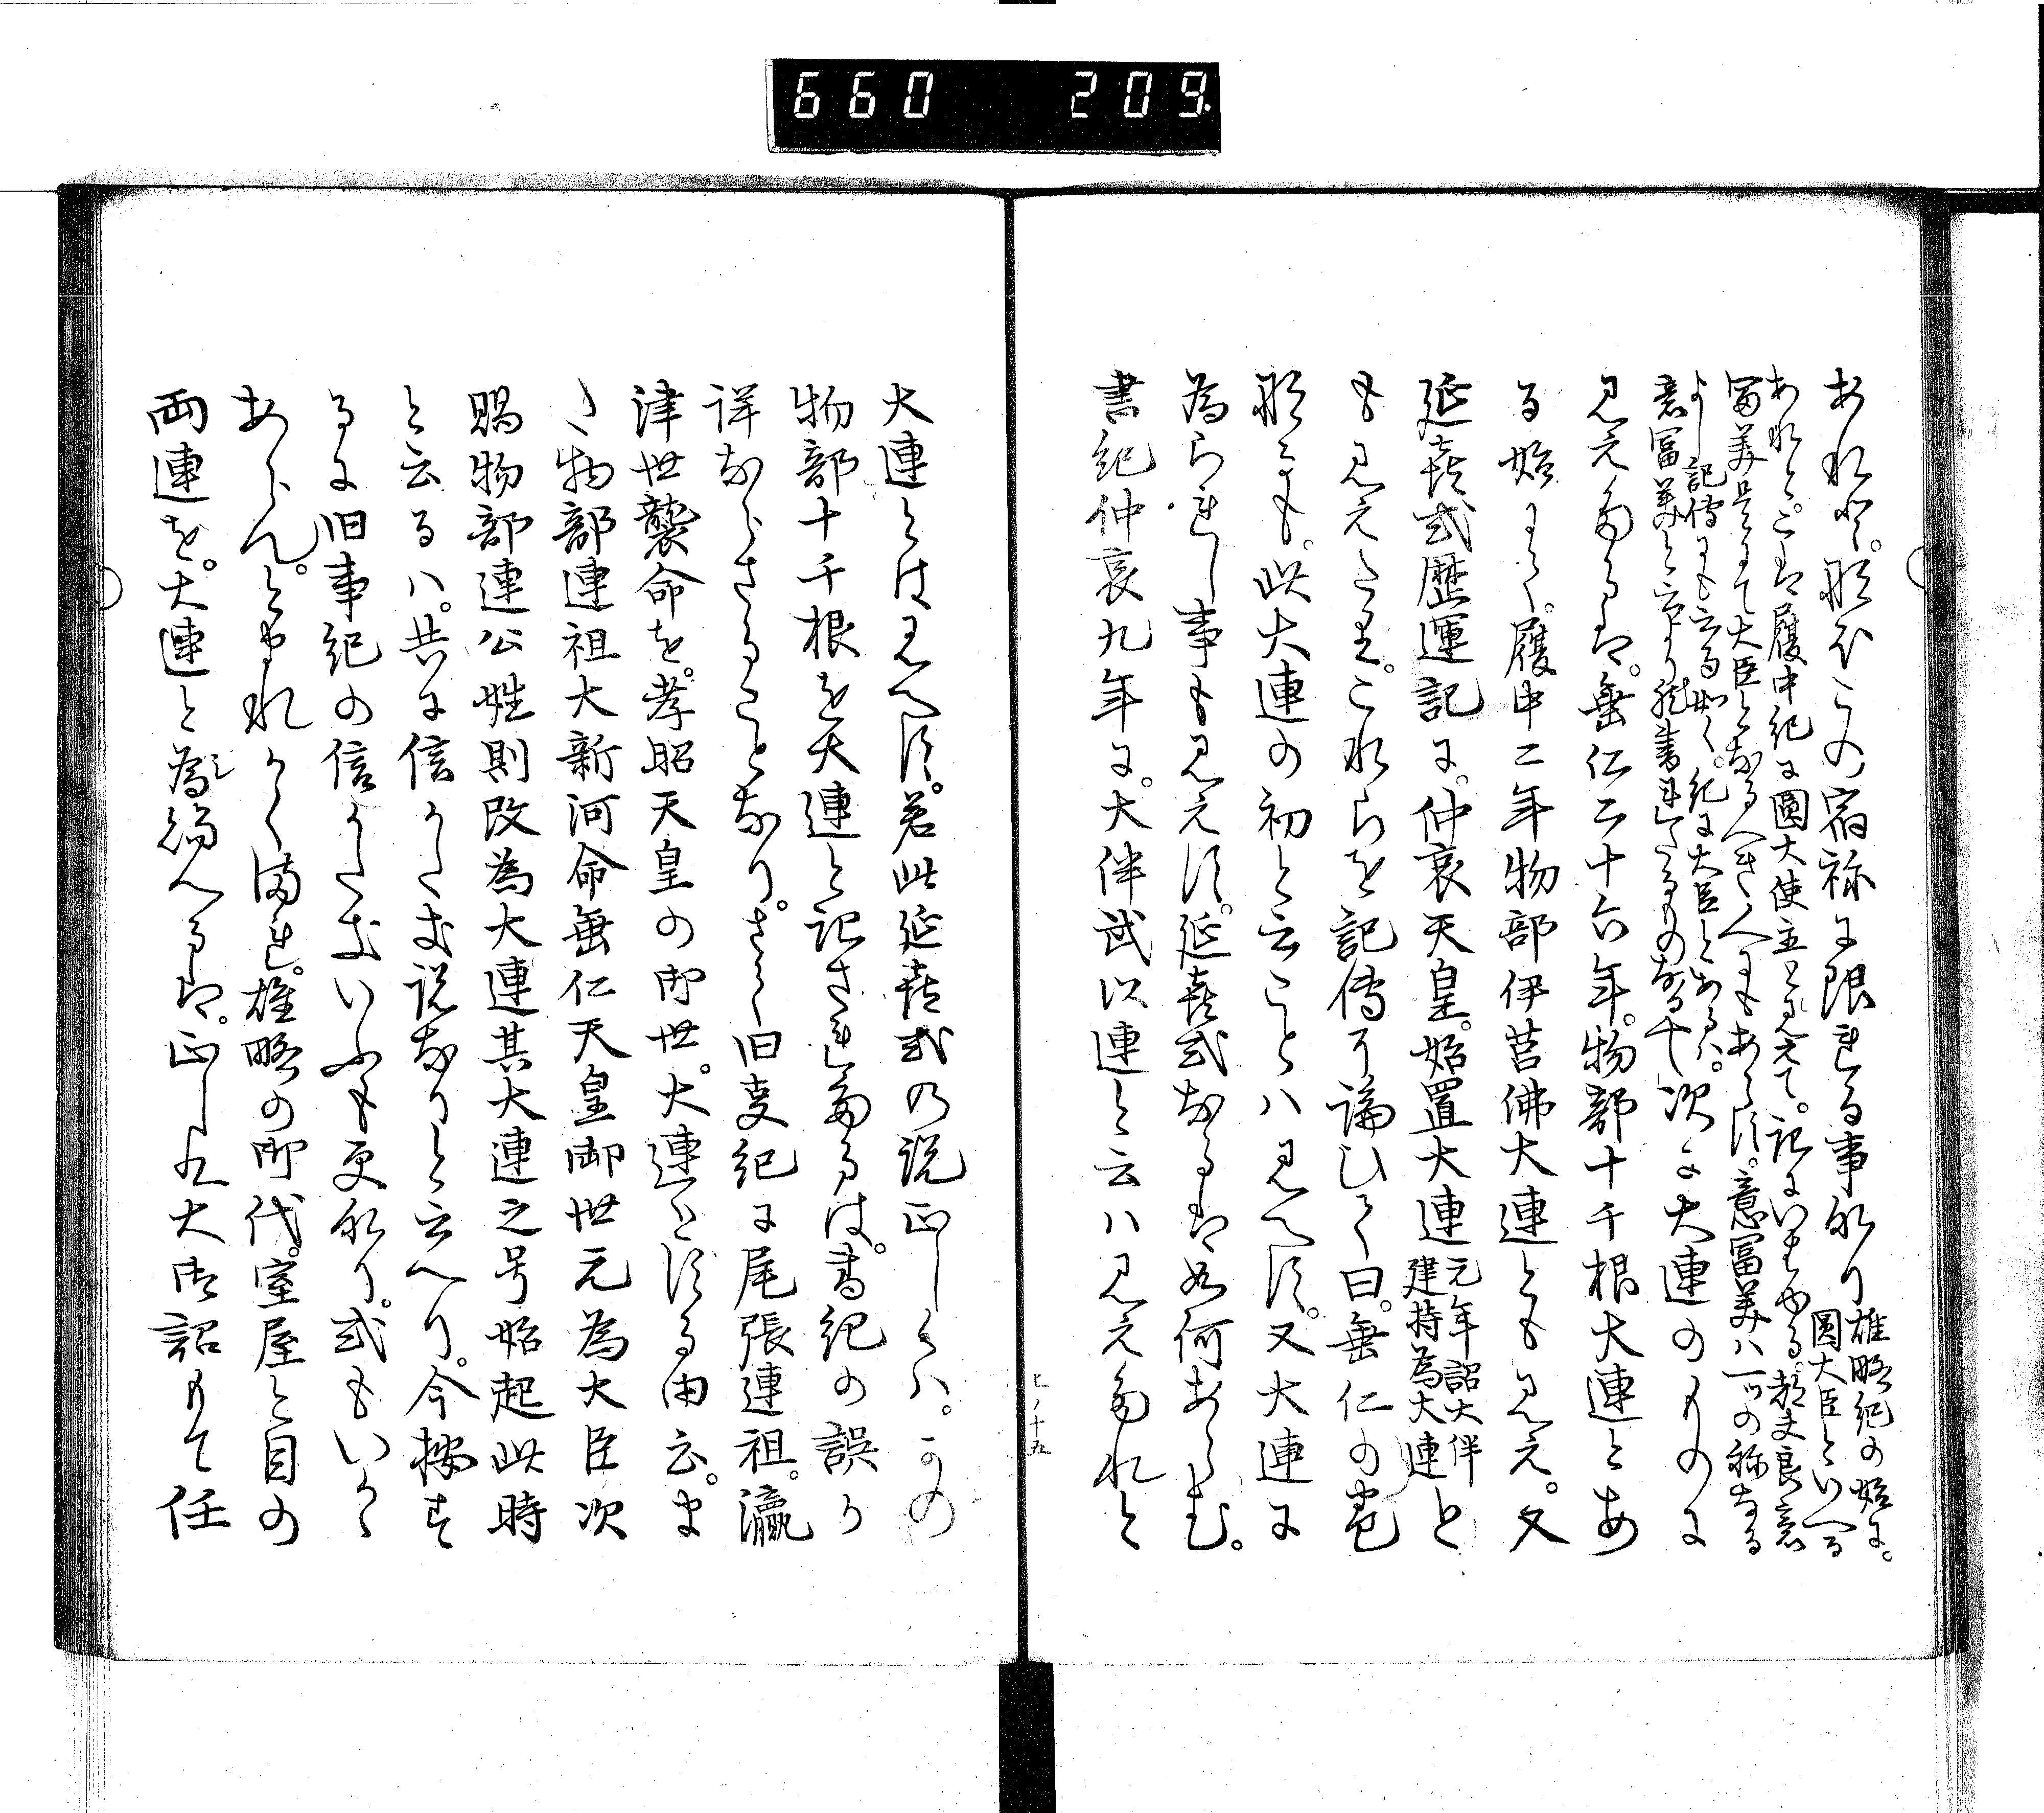 660 209.
あれど。那ほこの宿祢に限れる事那り 雄略紀の始に。
圓大臣といへる
あれと。こは履中紀に圓大使主と見えて。記にいはゆる。都夫良意
冨美是にて大臣となるへき人にもあらす。意冨美ハ一つの称なる
よし記傳にも云る如く。紀に大臣とあるハ。
意冨美と云より
次に大連のものに
見え多るは。垂仁二十六年。物部十千根大連とあ
る始にて。履中二年物部伊莒佛大連とも見え。又
延喜式歴運記に。仲哀天皇。始置大連 元年詔大伴
建持為大連 と
も見えたり。これらを記傳に論ひて曰。垂仁の巻
那とも。此大連の初と云ことハ見へす。又大連に
為られし事も見えす。延喜式なるは如何あらむ。
書紀仲哀九年に。大伴武以連と云ハ見え多れと
七ノ十五
大連とは見へす。若此延喜式の説正しくハ。かの
物部十千根を大連と記され多るは。書紀の誤か
詳ならさることなり。さて旧事紀に尾張連祖。瀛
津世襲命を。孝昭天皇の御世。大連とする由云。ま
た物部連祖大新河命垂仁天皇御世元為大臣次
賜物部連公姓則改為大連其大連之号始起此時
と云るハ。共に信かたき説なりと云へり。今按す
るに旧事紀の信かたきハいふも更那り。式もいかゝ
あらん。とまれかく満れ。雄略の御代。室屋と目の
両連を。大連と為シ給へるは。正しき大御詔もて任